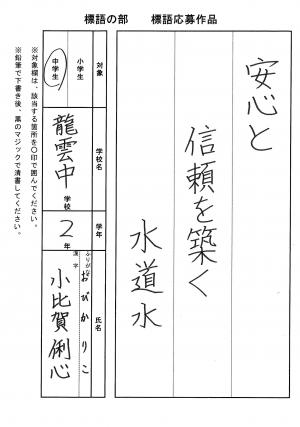 標語の部　標語応募作品
安心と
信頼を築く
水道水
対象
小学生
中学生
学校名
龍雲中 学校
学年
2 年
氏名
ふりがな おびかりこ
漢字 小比賀 俐心
※対象欄は、該当する箇所を〇印で囲んでください。
※鉛筆で下書き後、黒のマジックで清書してください。